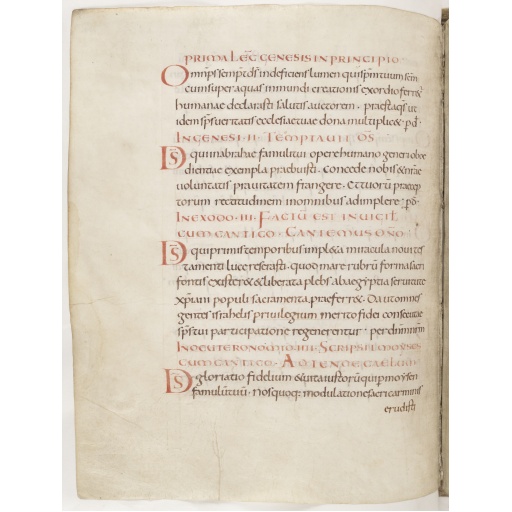 PRIMA LEC̄ GENESIS IN PRINCIPIO
Omnp̄s semp̄t d̄s indeficiens lumen qui sp̄m tuum
cum super aquas mundi creationis exordio ferr&
humanae declarasti salutis auctorem · praesta q̄s ut
idem sp̄s ueritatis ecclesiae tuae dona multiplic& · p̄d̄
IN GENESI · II · TEMPTAUIT D̄S
D̄S qui in abrahae famuli tui opere humano generi oboe
dientiae exempla praebuisti · concede nobis & n̄rae
uoluntatis prauitatem frangere · et tuorum praecep
torum rectitudinem in omnibus adimplere · p̄d̄
IN EXODO · III · FACTŪ EST IN UIGIL̄
CUM CANTICO · CANTEMUS D̄NO
D̄S qui primis temporibus impl&a miracula noui tes
tamenti luce reserasti · quod mare rubrū forma sacri
fontis exister& & liberata plebs ab aegyptia seruitute
xp̄iani populi sacramenta praeferr& · Da ut omnes
gentes israhelis priuilegium merito fidei consecutae
sp̄s tui participatione regenerentur · per dn̄m nr̄m
IN DEUTERONOMIO · IIII · SCRIPSIT MOYSES
CUM CANTICO · ADTENDE CAELUM
D̄S gloriatio fidelium & uita iustorū qui per moysen
famulū tuū · nos quoq: modulatione sacri carminis
erudisti